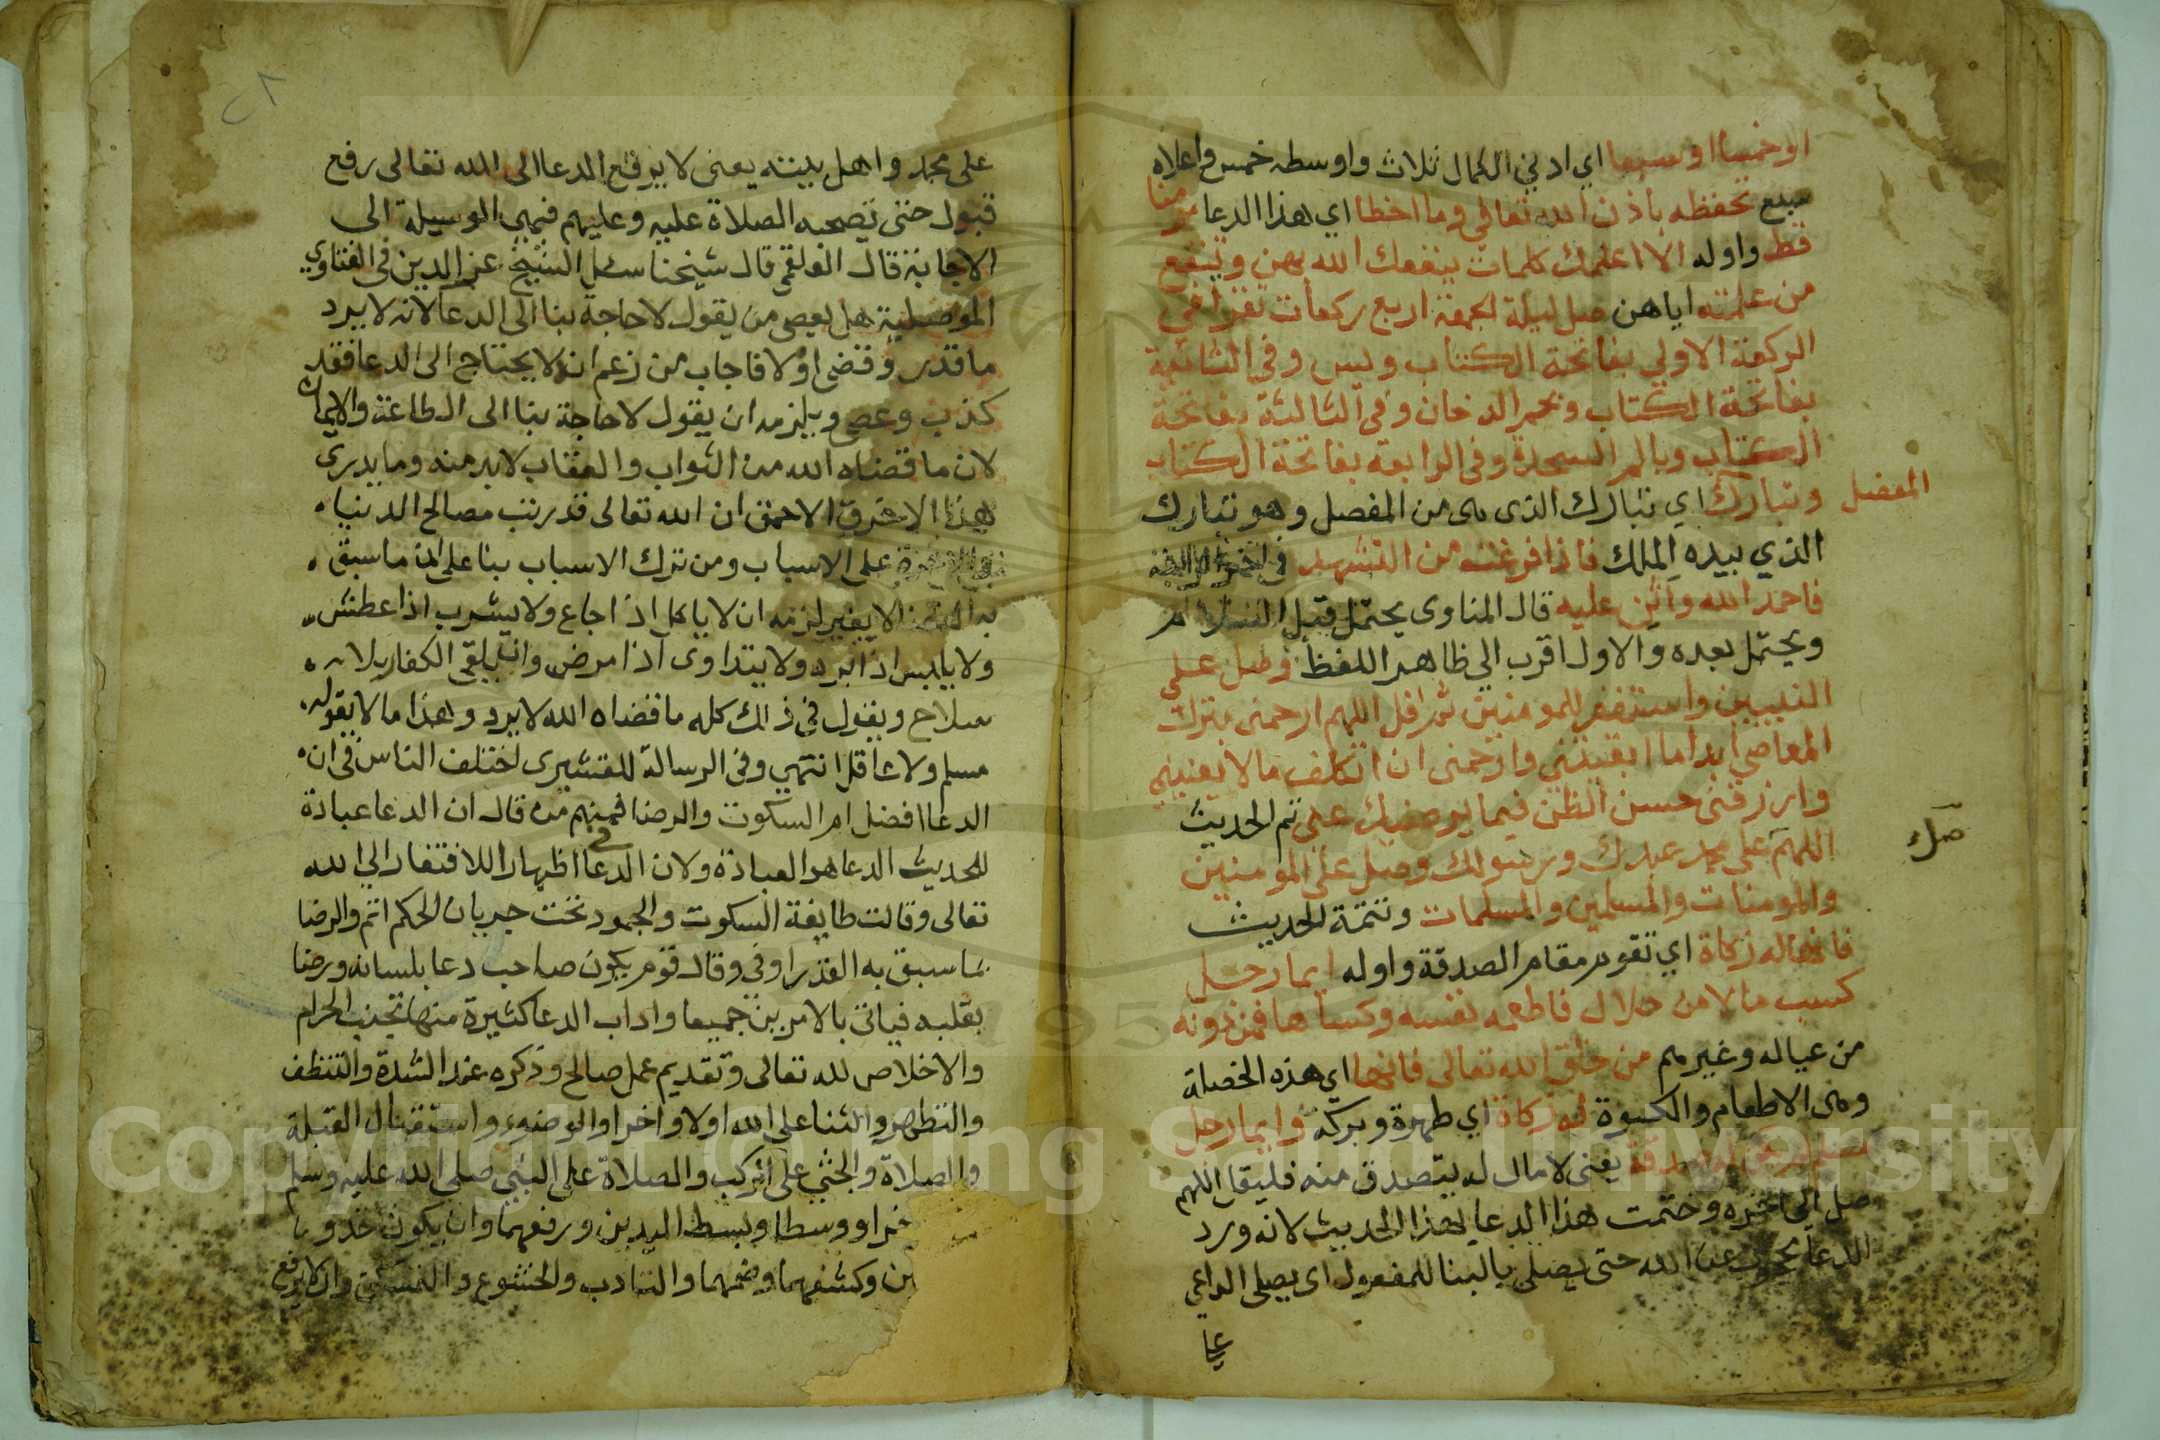 او خمسا او سبعا اي ادني الكمال ثلاث واوسطه خمس واعلاه
سبع تحفظه باذن الله تعالى وما اخطا اي هذا الدعا مومنا
قط واوله الا اعلمك كلمات ينفعك الله بهن وينفع
من علمته اياهن صل ليلة الجمعة اربع ركعات تقرا في
الركعة الاولي بفاتحة الكتاب ويس وفي الثانية
بفاتحة الكتاب وبحم الدخان وفي الثالثة بفاتحة
الكتاب وبالم السجدة وفي الرابعة بفاتحة الكتاب
وتبارك اي تبارك الذى هى من المفصل وهو تبارك
المفصل
الذي بيده الملك فاذا فرغت من التشهد في اخر
فاحمد الله واثن عليه قال المناوى يحتمل قبل السلام
ويحتمل بعده والاول اقرب الي ظاهر اللفظ وصل على
النبيين واستغفر للمومنين ثم قل اللهم ارحمنى بترك
المعاصي ابدا ما ابقيتني وارحمنى ان اتكلف ما لا يعنيني
وارزقنى حسن النظر فيما يرضيك عنى تم الحديث
اللهم على محمد عبدك ورسولك وصل على المومنين
صل
والمومنات والمسلمين والمسلمات وتتمة الحديث
فانها له زكاة اي تقوم مقام الصدقة واوله ايما رجل
كسب مالا من حلال فاطعمه نفسه وكساها فمن دونه
من عياله وغيرهم من خلق الله تعالى فانها اي هذه الخصلة
وهى الاطعام والكسوة له زكاة اي طهرة وبركة وايما رجل
مسلم لم يكن له صدقة يعنى لا مال له يتصدق منه فليقل اللهم
صل الي اخره وختمت هذا الدعا بهذا الحديث لانه ورد
الدعا محجوب عن الله حتى يصلى بالبنا للمفعول اى يصلى الداعي
على
على محمد واهل بيته يعنى لا يرفع الدعا الى الله تعالى رفع
قبول حتى تصحبه الصلاة عليه وعليهم فهى الوسيلة الى
الاجابة قال العلقمى قال شيخنا سئل الشيخ عز الدين فى الفتاوي
الموصلية هل يعصى من يقول لا حاجة بنا الى الدعا لانه لا يرد
ما قدر وقضى اولا فاجاب من زعم انه لا يحتاج الى الدعا فقد
كذب وعصى ويلزمه ان يقول لا حاجة بنا الى الطاعة والايمان
لان ما قضاه الله من الثواب والعقاب لابد منه وما يدرى
هذا الاخرق الاحمق ان الله تعالى قد رتب مصالح الدنيا
والاخرة على الاسباب ومن ترك الاسباب بنا على ان ما سبق
به القضا لا يغير لزمه ان لا ياكل اذا جاع ولا يشرب اذا عطش
ولا يلبس اذا برد ولا يتداوى اذا مرض وان يلقى الكفار بلا
سلاح ويقول في ذلك كله ما قضاه الله لا يرد وهذا ما لا يقوله
مسلم ولا عاقل انتهى وفى الرسالة للقشيرى اختلف الناس فى ان
الدعا افضل ام السكوت والرضا فمنهم من قال ان الدعا عبادة
للحديث الدعا هو العبادة ولان فى الدعا اظهار اللافتقار الي الله
تعالى وقالت طايفة السكوت والجمود تحت جريان الحكم اتم والرضا
بما سبق به القدر اوفي وقال قوم يكون صاحب دعا بلسانه ورضا
بقلبه فياتى بالامرين جميعا واداب الدعا كثيرة منها تجنب الحرام
والاخلاص لله تعالى وتقديم عمل صالح وذكره عند الشدة والتنظف
والتطهر والثنا على الله اولا واخرا والوضوء واستقبال القبلة
والصلاة والجثي على الركب والصلاة على النبي صلى الله عليه وسلم
خرا ووسطا وبسط اليدين ورفعهما وان يكون حذو
ين وكشفهما وضمهما والتادب والخشوع والتمسكن وان لا يرفع